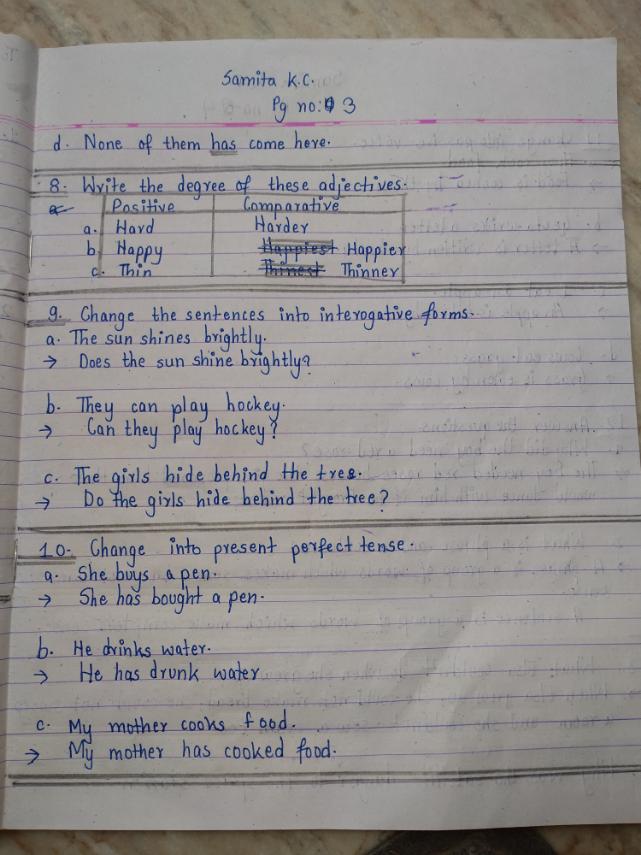 Samita K.C.
Pg no: 3
d. None of them has come here.
8. Write the degree of these adjectives.
Positive Comparative
a. Hard Harder
b. Happy Happiest Happier
c. Thin Thinest Thinner
9. Change the sentences into interogative forms.
a. The sun shines brightly.
→ Does the sun shine brightly?
b. They can play hockey.
→ Can they play hockey?
c. The girls hide behind the tree.
→ Do the girls hide behind the tree?
10. Change into present perfect tense.
a. She buys a pen.
→ She has bought a pen.
b. He drinks water.
→ He has drunk water
c. My mother cooks food.
→ My mother has cooked food.